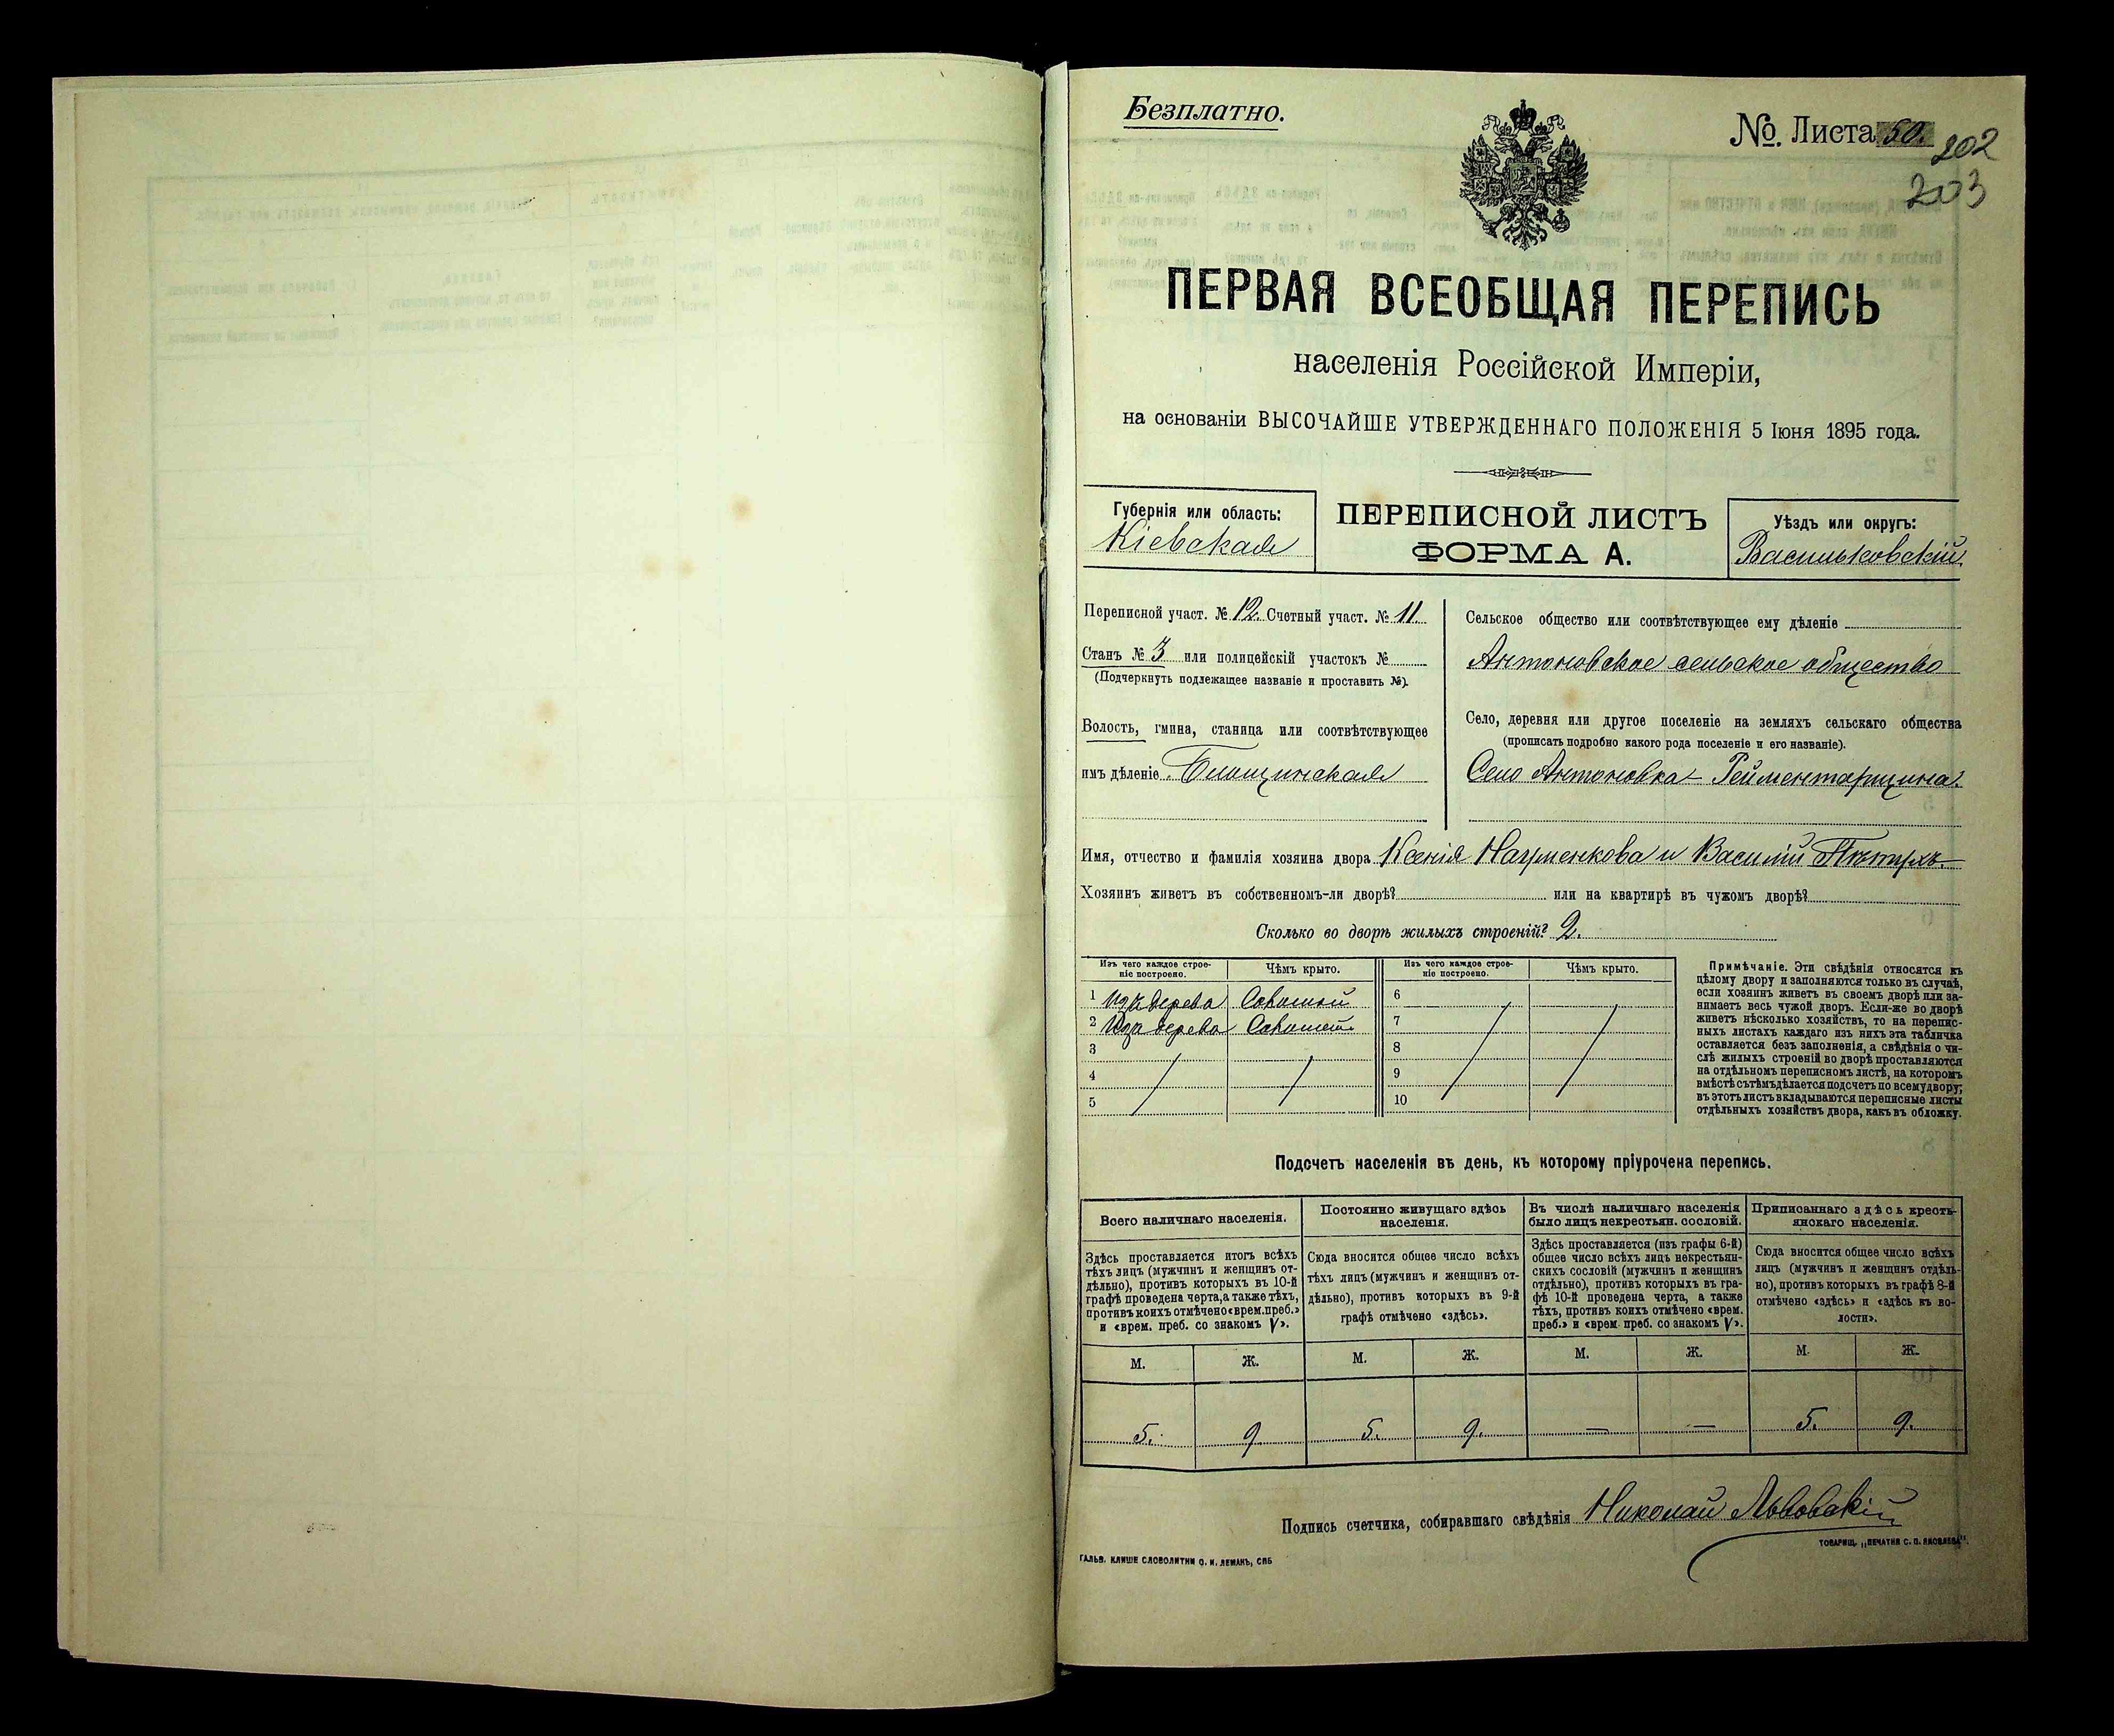 Безплатно.
№. Листа 50.
202
203
ПЕРВАЯ ВСЕОБЩАЯ ПЕРЕПИСЬ
населенія Россійской Имперіи,
на основаніи ВЫСОЧАЙШЕ УТВЕРЖДЕННАГО ПОЛОЖЕНІЯ 5 Іюня 1895 года.
Губернія или область:
Кіевская
ПЕРЕПИСНОЙ ЛИСТЪ
ФОРМА А.
Уѣздъ или округъ:
Васильковскій
Переписной участ. № 12. Счетный участ. № 11.
Станъ № 3 или полицейскій участокъ №
(Подчеркнуть подлежащее названіе и проставить №).
Волость, гмина, станица или соотвѣтствующее
имъ дѣленіе Блощинская
Сельское общество или соотвѣтствующее ему дѣленіе
Антоновское сельское общество
Село, деревня или другое поселеніе на земляхъ сельскаго общества
(прописать подробно какого рода поселеніе и его названіе).
Село Антоновка - Рейментарщина.
Имя, отчество и фамилія хозяина двора Ксенія Науменкова и Василій
Хозяинъ живетъ въ собственномъ-ли дворѣ? или на квартирѣ въ чужомъ дворѣ?
Сколько во дворѣ жилыхъ строеній? 2.
Изъ чего каждое строе-
ніе построено.
Чѣмъ крыто.
Изъ чего каждое строе-
ніе построено.
Чѣмъ крыто.
1 Изъ дерева Соломой
2 Изъ дерева Соломой
3
4
5
6
7
8
9
10
Примѣчаніе. Эти свѣдѣнія относятся къ
цѣлому двору и заполняются только въ случаѣ,
если хозяинъ живетъ въ своемъ дворѣ или за-
нимаетъ весь чужой дворъ. Если-же во дворѣ
живетъ нѣсколько хозяйствъ, то на перепис-
ныхъ листахъ каждаго изъ нихъ эта табличка
оставляется безъ заполненія, а свѣдѣнія о чи-
слѣ жилыхъ строеній во дворѣ проставляются
на отдѣльномъ переписномъ листѣ, на которомъ
вмѣстѣ съ тѣмъ дѣлается подсчетъ по всему двору;
въ этотъ листъ вкладываются переписные листы
отдѣльныхъ хозяйствъ двора, какъ въ обложку.
Подсчетъ населенія въ день, къ которому пріурочена перепись.
Всего наличнаго населенія.
Здѣсь проставляется итогъ всѣхъ
тѣхъ лицъ (мужчинъ и женщинъ от-
дѣльно), противъ которыхъ въ 10-й
графѣ проведена черта, а также тѣхъ,
противъ коихъ отмѣчено «врем. преб.»
и «врем. преб. со знакомъ V».
Постоянно живущаго здѣсь
населенія.
Сюда вносится общее число всѣхъ
тѣхъ лицъ (мужчинъ и женщинъ от-
дѣльно), противъ которыхъ въ 9-й
графѣ отмѣчено «здѣсь».
Въ числѣ наличнаго населенія
было лицъ некрестьян. сословій.
Здѣсь проставляется (изъ графы 6-й)
общее число всѣхъ лицъ некрестьян-
скихъ сословій (мужчинъ и женщинъ
отдѣльно), противъ которыхъ въ гра-
фѣ 10-й проведена черта, а также
тѣхъ, противъ коихъ отмѣчено «врем.
преб.» и «врем. преб. со знакомъ V».
Приписаннаго здѣсь кресть-
янскаго населенія.
Сюда вносится общее число всѣхъ
лицъ (мужчинъ и женщинъ отдѣль-
но), противъ которыхъ въ графѣ 8-й
отмѣчено «здѣсь» и «здѣсь въ во-
лости».
М. Ж. М. Ж. М. Ж. М. Ж.
5. 9 5. 9. — — 5. 9.
Подпись счетчика, собиравшаго свѣдѣнія Николай Львовскій
ГАЛЬВ. КЛИШЕ СЛОВОЛИТНИ О. И. ЛЕМАНЪ, СПБ
ТОВАРИЩ. „ПЕЧАТНЯ С. П. ЯКОВЛЕВА".